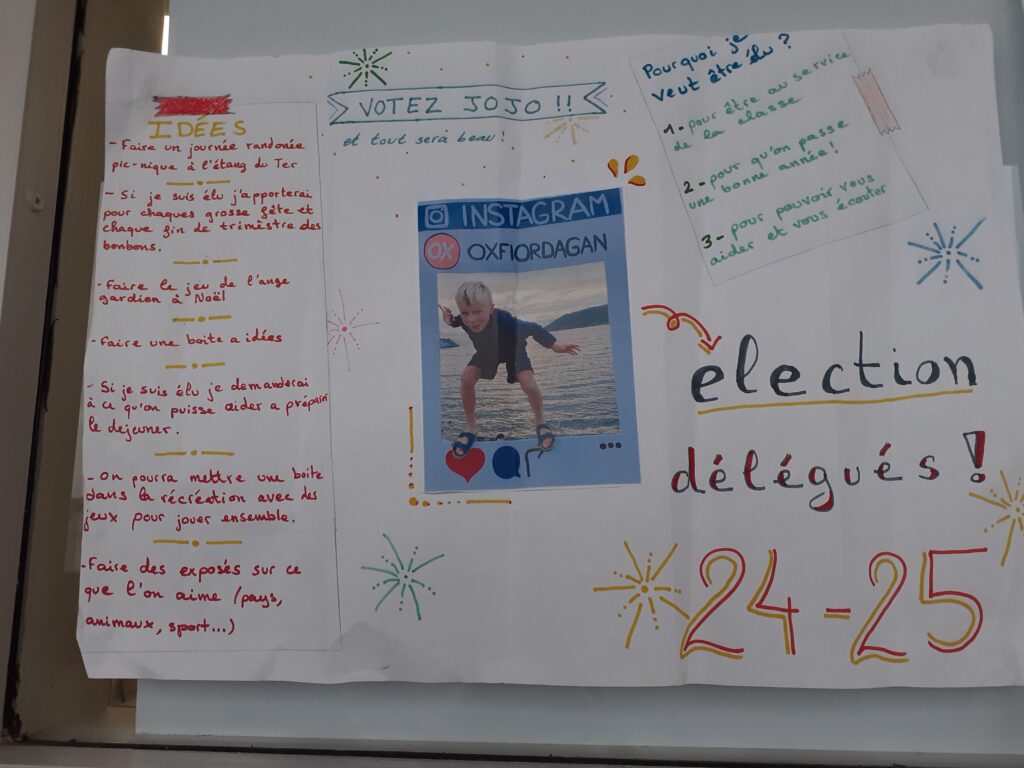 IDÉES
- Faire un journée randonée
pic-nique à l'étang du Ter
- Si je suis élu j'apporterai
pour chaques grosse fête et
chaque fin de trimistre des
bonbons.
- Faire le jeu de l'ange
gardien à Noël
- Faire une boîte a idées
- Si je suis élu je demanderai
à ce qu'on puisse aider a préparer
le dejeuner.
- On pourra mettre une boîte
dans la récréation avec des
jeux pour jouer ensemble.
- Faire des exposés sur ce
que l'on aime (pays,
animaux, sport...)
VOTEZ JOJO !!
et tout sera beau !
INSTAGRAM
OX OXFIORDAGAN
Pourquoi je
veut être élu ?
1- pour être au service
de la classe
2- pour qu'on passe
une bonne année !
3- pour pouvoir vous
aider et vous écouter
election
délégués !
24-25